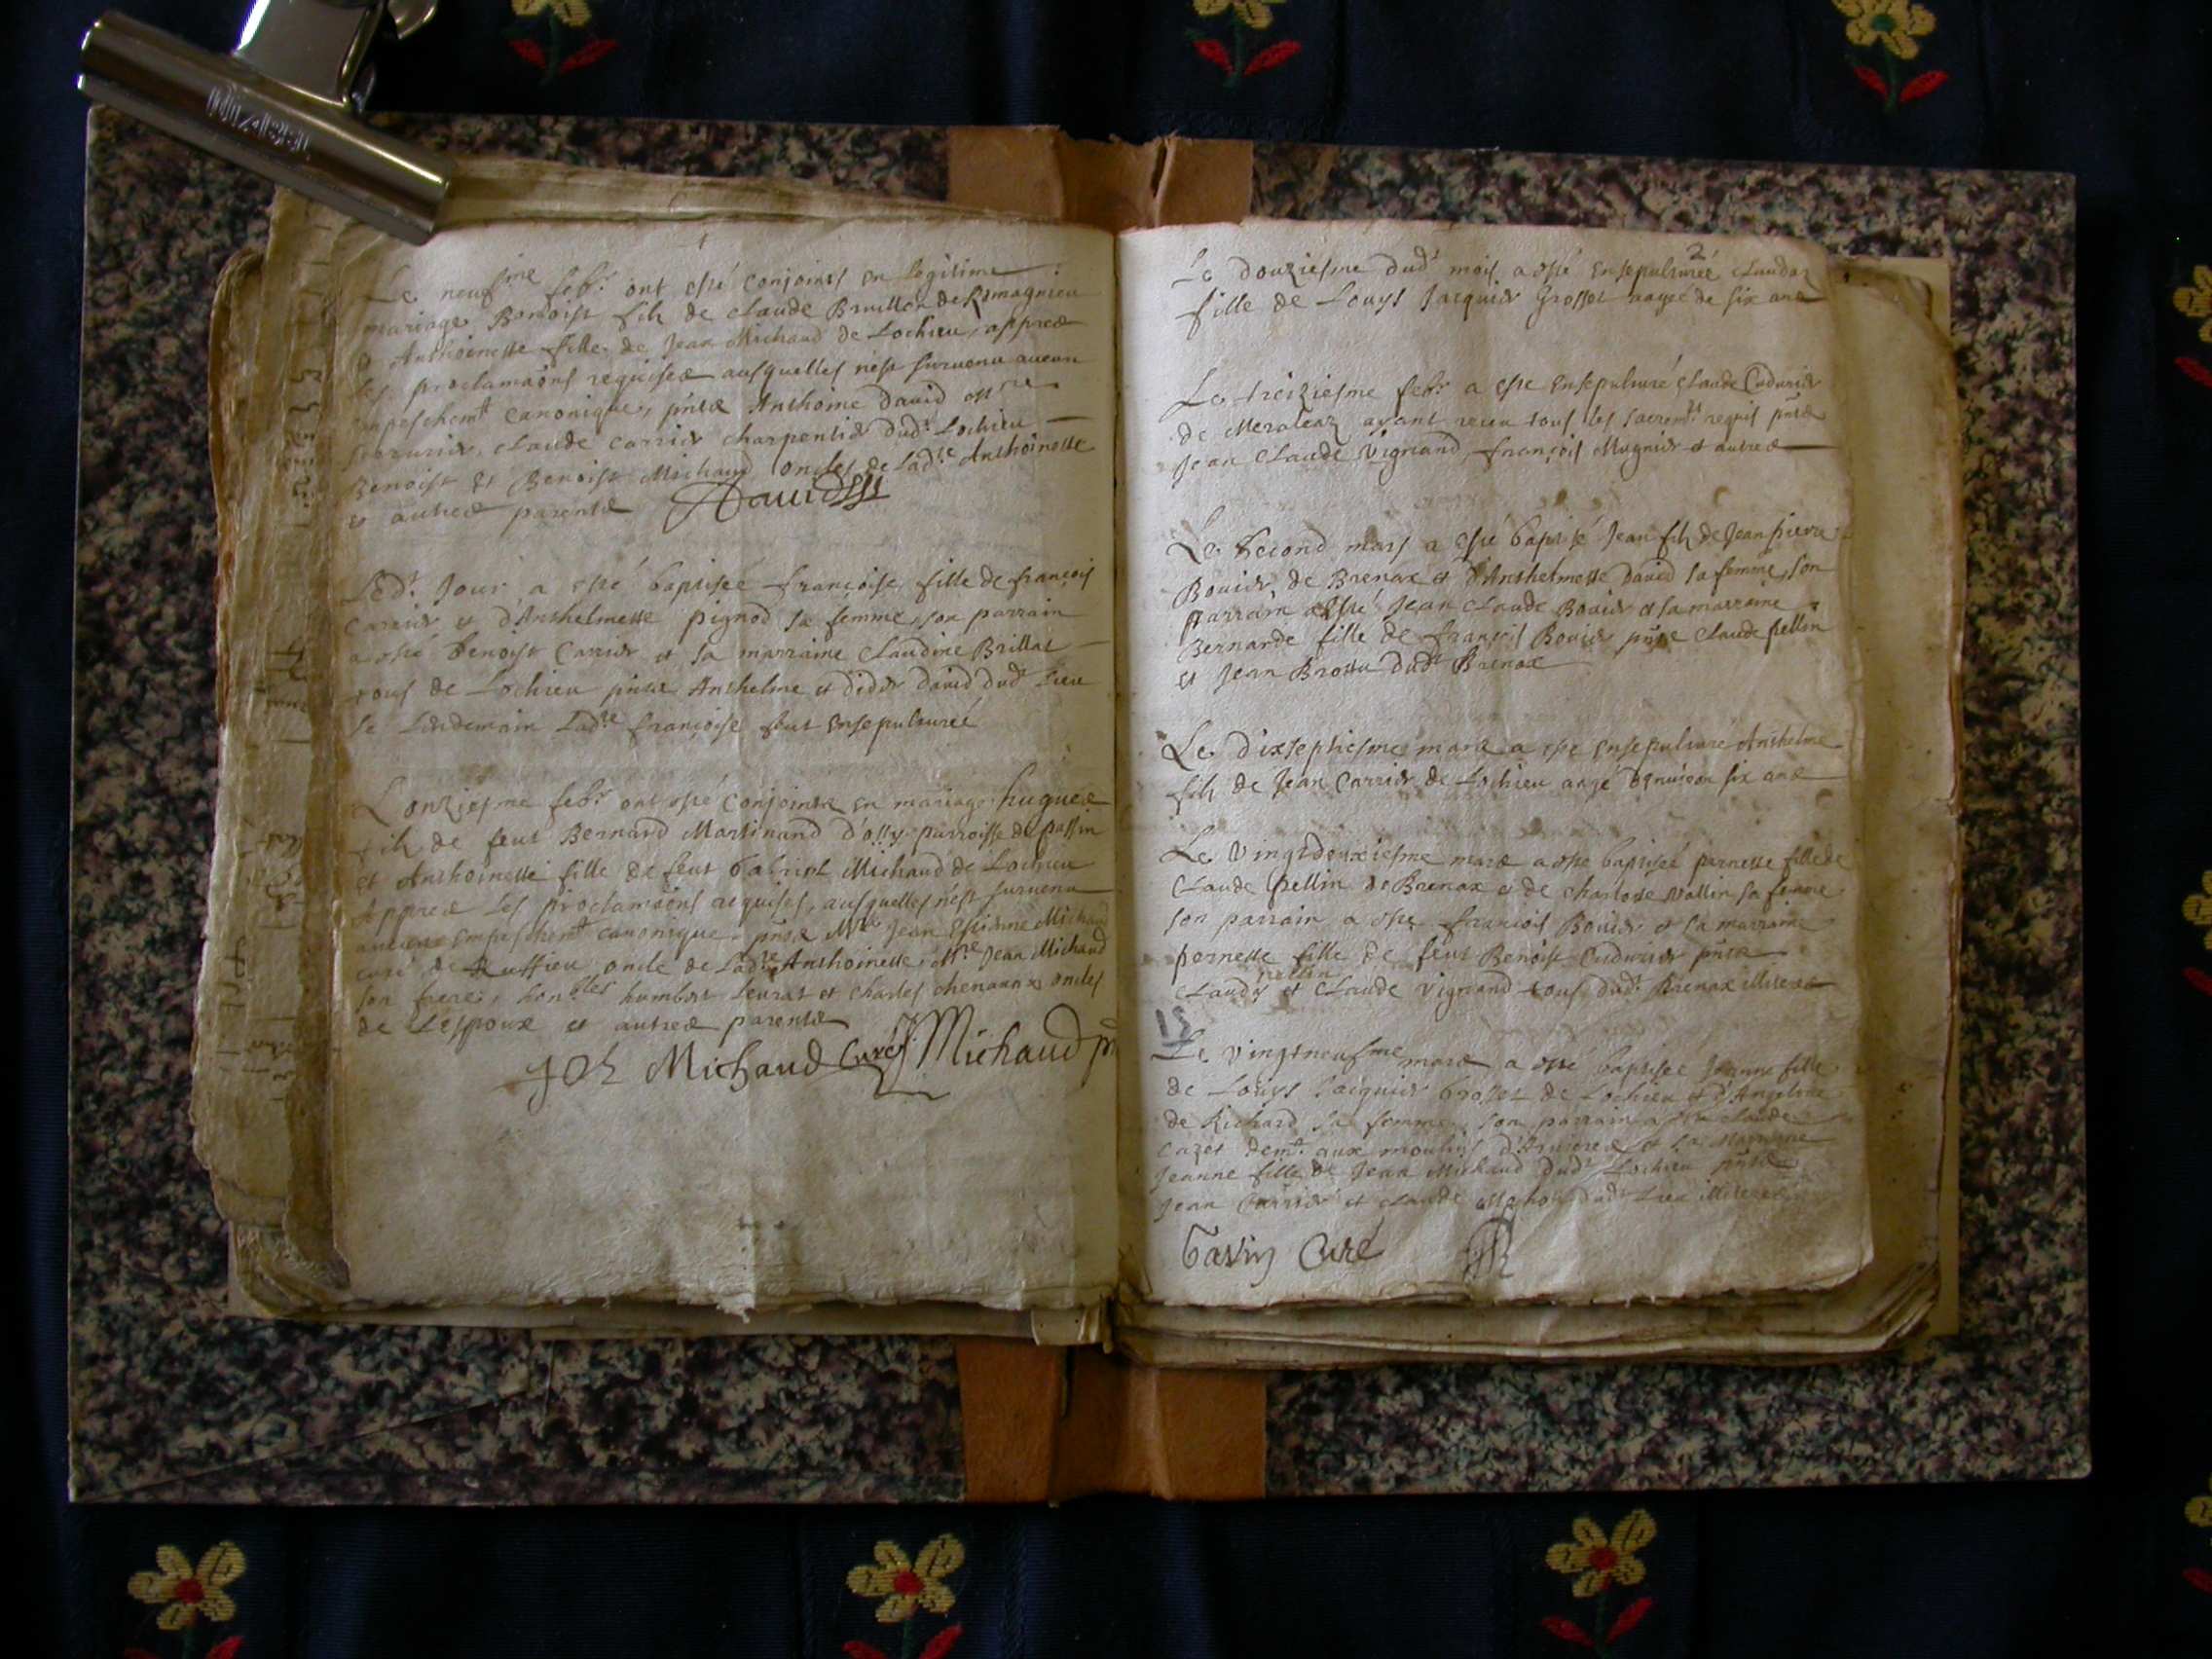 Le neufme febr. ont esté conjoints en legitime
mariage Benoist fils de claude Bruillon de Romagnieu
et Anthoinette fille de Jean Michaud de Lochieu, apprez
les proclamaons requises ausquelles n'est survenu aucun
empeschemt canonique, pntz Anthoine David
claude carrier charpentier dudt Lochieu
Benoist et Benoist Michaud oncles de Ladte Anthoinette
et autres parents David
Ledt Jour a esté baptisée françoise fille de françois
Carrier et d'Anthelmette pignod sa femme, son parrain
a esté Benoist Carrier et sa marraine Claudine Brillat
tous de Lochieu pntz Anthelme et didier David dudt Lieu
le Lendemain Ladte françoise fut ensepulturée
L'onziesme febr. ont esté conjoints en mariage hugues
fils de feut Bernard Martinand d'ossy parroisse de passin
et Anthoinette fille de feut Gabriel Michaud de Lochieu
Apprez les proclamaons requises, ausquelles n'est survenu
aucun empeschemt canonique. pntz Mre Jean Estienne Michaud
curé de Ruffieu oncle de Ladte Anthoinette Mre Jean Michaud
son frere, honbles humbert seurat et charles chenavax oncles
de L'espoux et autres parents
Joh Michaud Curé J Michaud
2
Le douziesme dudt mois a esté ensepulturée Claudaz
fille de Louys Jacquier Grosset aagée de six ans
Le treiziesme febr. a esté ensepulturé Claude Cudurier
de Meraleaz ayant receu tous les sacremts requis pntz
Jean Claude Vignand, françois Mugnier et autres
Le second mars a esté baptisé Jean fils de Jean pierre
Bouier de Brenax et d'Anthelmette David sa femme, son
parrain a esté Jean Claude Bouier et sa marraine
Bernarde fille de françois Bouier pntz Claude pellin
et Jean Brossu dudt Brenax
Le dixseptiesme mars a esté ensepulturé Anthelme
fils de Jean Carrier de Lochieu aagé d'environ six ans
Le Vingtdeuxiesme mars a esté baptisée parnette fille de
Claude pellin de Brenax et de charlotte Vallin sa femme
son parrain a esté françois Bouier et sa marraine
pernette fille de feut Benoist Cudurier pntz
pellin
Claudy et Claude Vignand tous dudt Brenax
15
Le Vingtneufme mars a esté baptisée Jeanne fille
de Louys Jacquier Grosset de Lochieu et d'Angeline
de Richard sa femme, son parrain a esté claude
Cazet demt aux moulins d'Arvieres et sa marraine
Jeanne fille de Jean Michaud dudt Lochieu pntz
Jean Carrier et claude dudt Lieu
Gavin Curé